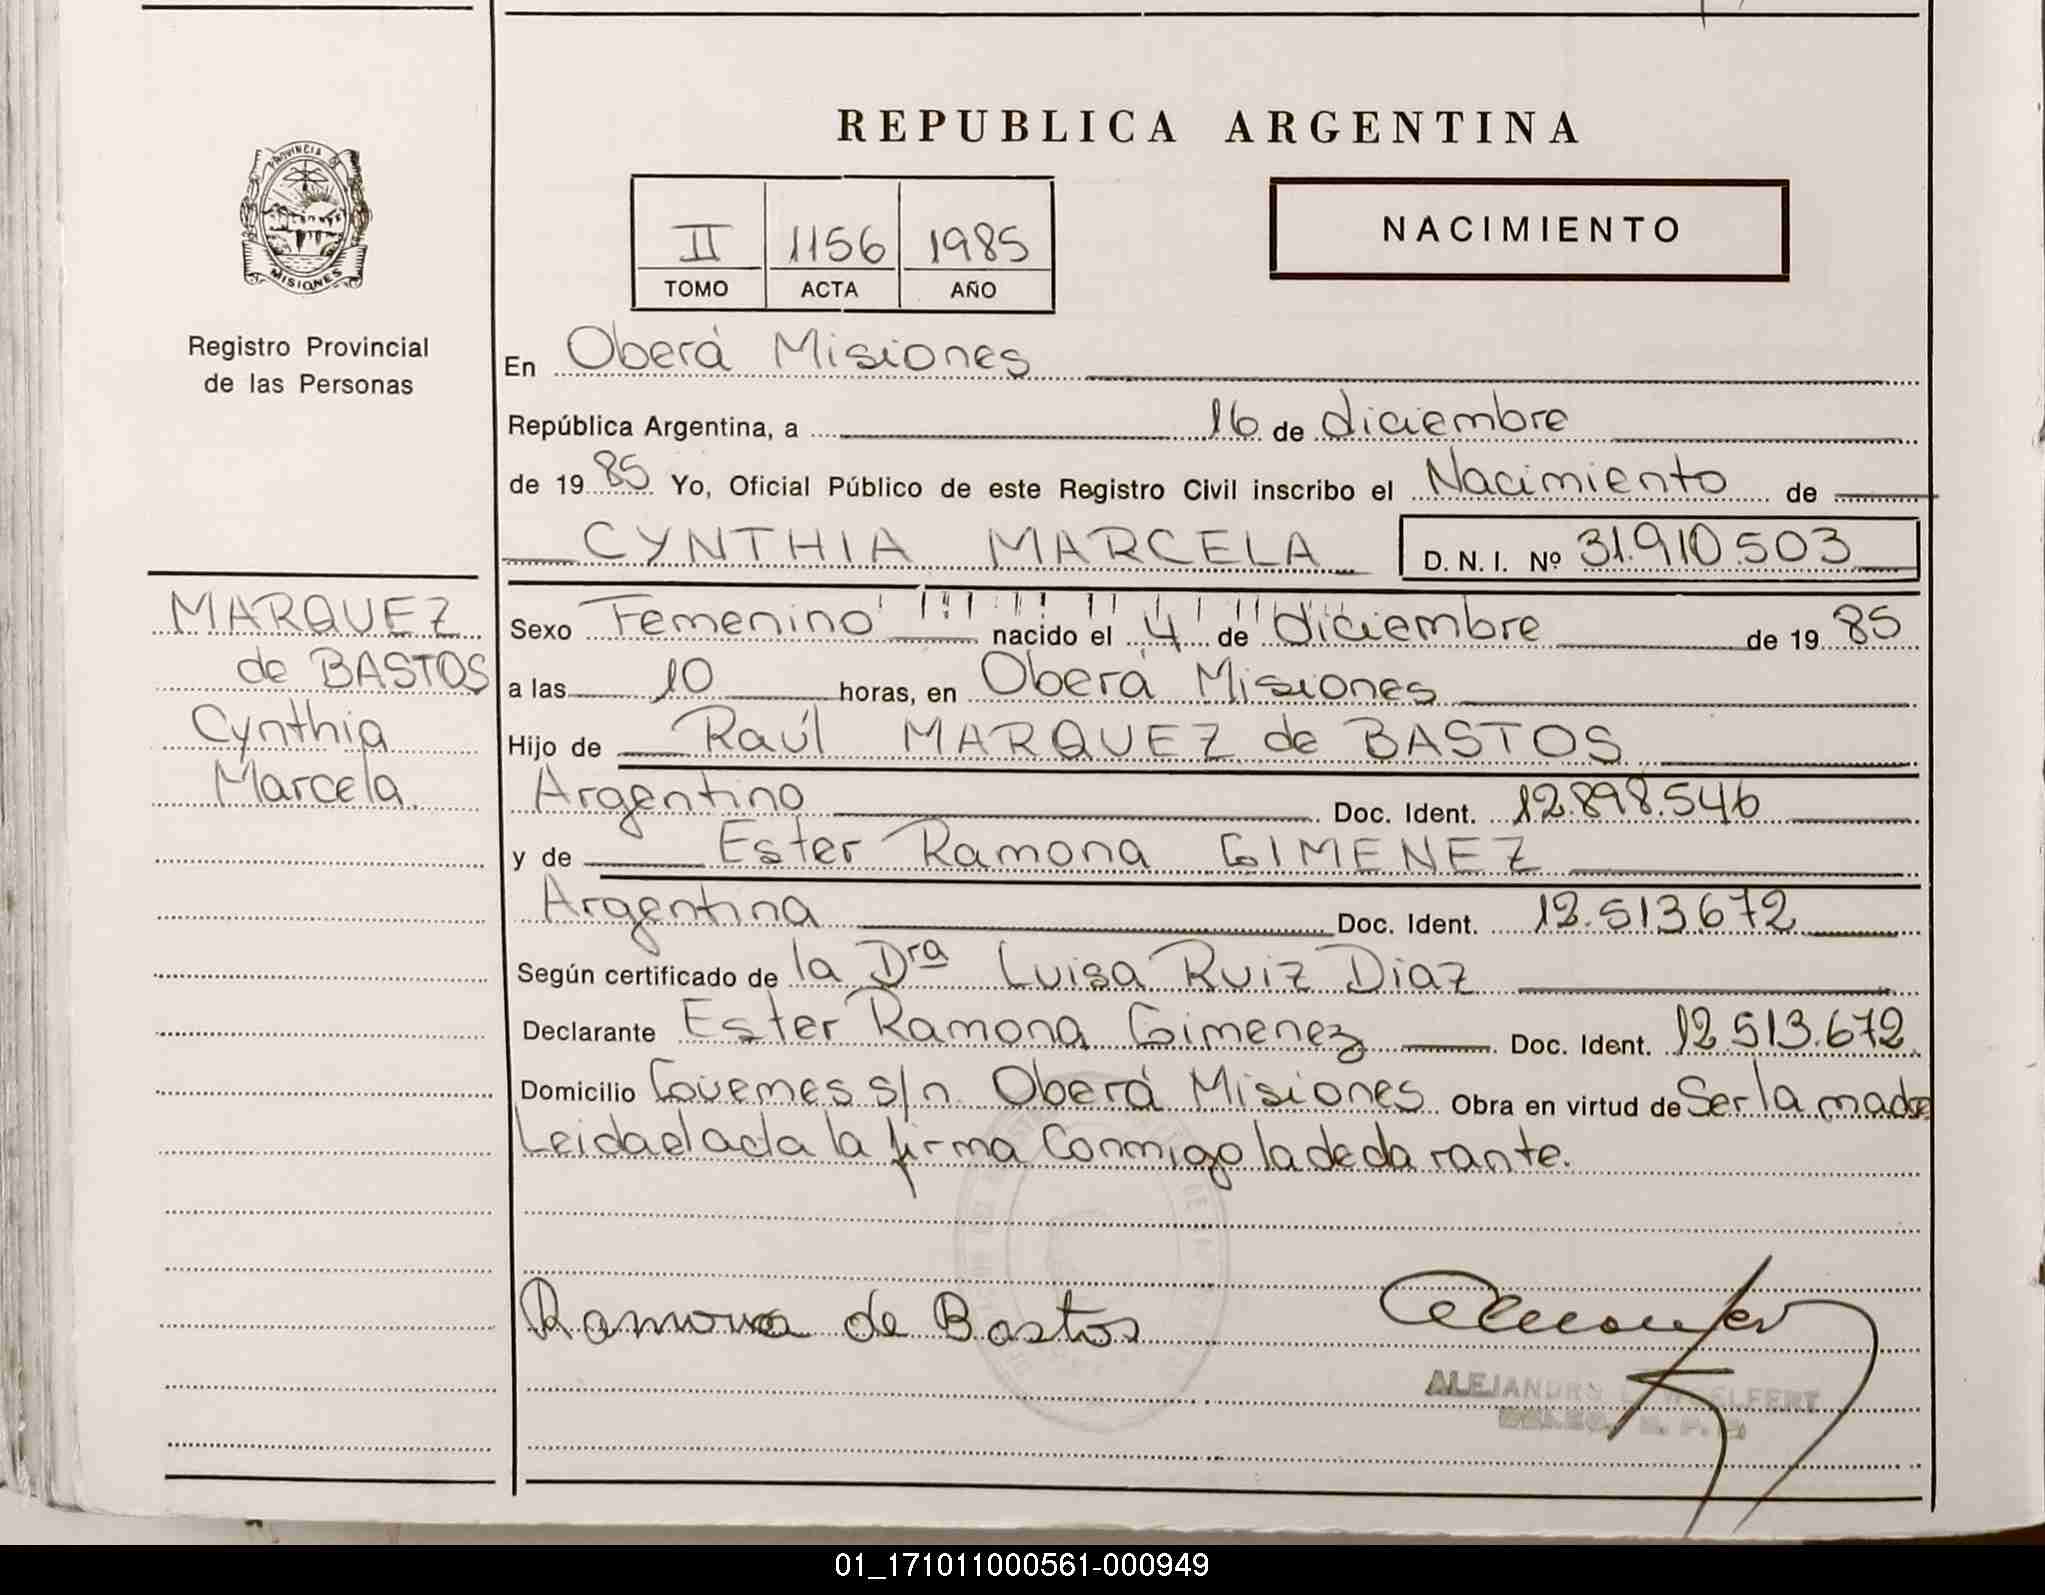 REPUBLICA ARGENTINA
PROVINCIA DE
MISIONES
II 1156 1985
TOMO ACTA AÑO
NACIMIENTO
Registro Provincial
de las Personas
MARQUEZ
de BASTOS
Cynthia
Marcela.
En Oberá Misiones
República Argentina, a 16 de diciembre
de 1985 Yo, Oficial Público de este Registro Civil inscribo el Nacimiento de
CYNTHIA MARCELA D. N. I. Nº 31.910.503
Sexo Femenino nacido el 4 de diciembre de 1985
a las 10 horas, en Oberá Misiones
Hijo de Raúl MARQUEZ de BASTOS
Argentino Doc. Ident. 12.898.546
y de Ester Ramona GIMENEZ
Argentina Doc. Ident. 12.513.672
Según certificado de la Dra Luisa Ruiz Diaz
Declarante Ester Ramona Gimenez Doc. Ident. 12.513.672
Domicilio Güemes s/n Oberá Misiones Obra en virtud de Ser la madre
Leida el acta la firma Conmigo la declarante.
Ramona de Bastos
ALEJANDRO
01_171011000561-000949